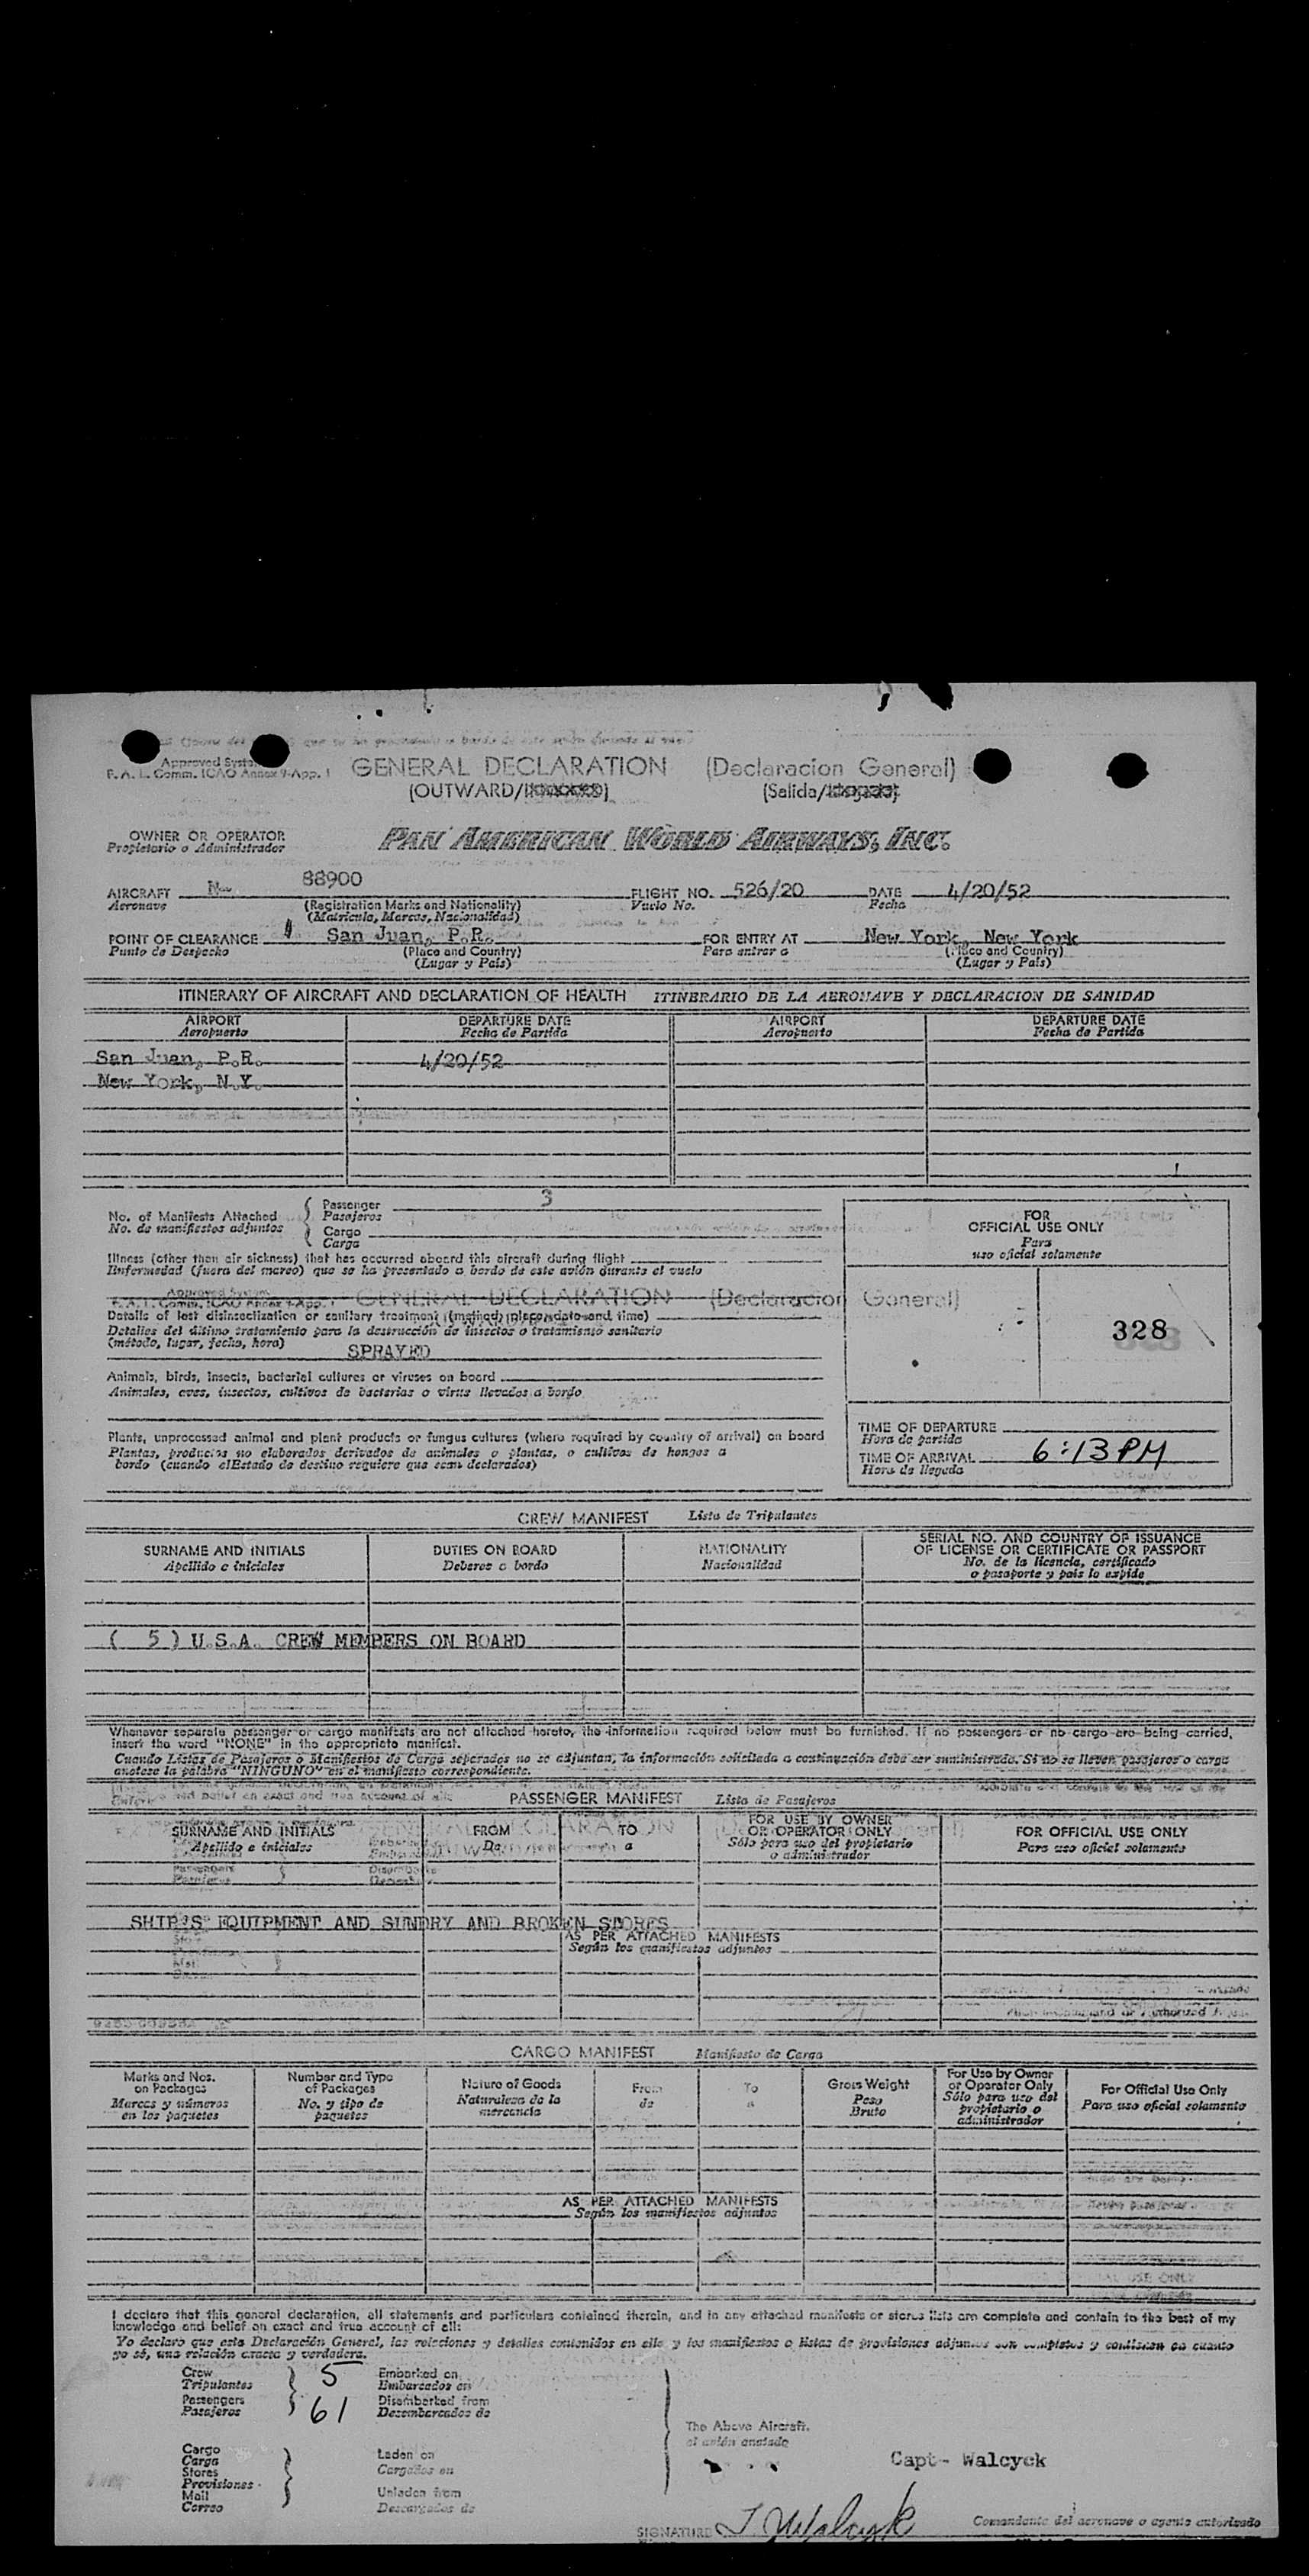 Approved System
F. A. L. Comm. ICAO Annex 9-App. 1
GENERAL DECLARATION (Declaracion General)
(OUTWARD/XXXXXX) (Salida/XXXXXX)
OWNER OR OPERATOR
Propietario o Administrador
PAN AMERICAN WORLD AIRWAYS, INC.
AIRCRAFT N- 88900 FLIGHT NO. 526/20 DATE 4/20/52
Aeronave (Registration Marks and Nationality) Vuelo No. Fecha
(Matricula, Marcas, Nacionalidad)
POINT OF CLEARANCE San Juan, P.R. FOR ENTRY AT New York, New York
Punto de Despacho (Place and Country) Para entrar a (Place and Country)
(Lugar y País) (Lugar y País)
ITINERARY OF AIRCRAFT AND DECLARATION OF HEALTH ITINERARIO DE LA AERONAVE Y DECLARACION DE SANIDAD
AIRPORT DEPARTURE DATE AIRPORT DEPARTURE DATE
Aeropuerto Fecha de Partida Aeropuerto Fecha de Partida
San Juan, P.R. 4/20/52
New York, N.Y.
No. of Manifests Attached Passenger 3
No. de manifiestos adjuntos Pasajeros
Cargo
Carga
FOR
OFFICIAL USE ONLY
Para
uso oficial solamente
Illness (other than air sickness) that has occurred aboard this aircraft during flight
Enfermedad (fuera del mareo) que se ha presentado a bordo de este avión durante el vuelo
Approved System
F. A. L. Comm. ICAO Annex 9-App. 1 GENERAL DECLARATION (Declaracion General)
Details of last disinsectization or sanitary treatment (method, place, date and time)
Detalles del último tratamiento para la destrucción de insectos o tratamiento sanitario
(método, lugar, fecha, hora)
SPRAYED
328
Animals, birds, insects, bacterial cultures or viruses on board
Animales, aves, insectos, cultivos de bacterias o virus llevados a bordo
Plants, unprocessed animal and plant products or fungus cultures (where required by country of arrival) on board
Plantas, productos no elaborados derivados de animales o plantas, o cultivos de hongos a
bordo (cuando elEstado de destino requiere que sean declarados)
TIME OF DEPARTURE
Hora de partida
TIME OF ARRIVAL 6:13 PM
Hora de llegada
CREW MANIFEST Lista de Tripulantes
SURNAME AND INITIALS DUTIES ON BOARD NATIONALITY SERIAL NO. AND COUNTRY OF ISSUANCE
OF LICENSE OR CERTIFICATE OR PASSPORT
Apellido e iniciales Deberes a bordo Nacionalidad No. de la licencia, certificado
o pasaporte y país lo expide
( 5 ) U.S.A. CREW MEMBERS ON BOARD
Whenever separate passenger or cargo manifests are not attached hereto, the information required below must be furnished. If no passengers or no cargo are being carried,
insert the word "NONE" in the appropriate manifest.
Cuando Listas de Pasajeros o Manifiestos de Carga separados no se adjuntan, la información solicitada a continuación debe ser suministrada. Si no se llevan pasajeros o carga
anotese la palabra "NINGUNO" en el manifiesto correspondiente.
PASSENGER MANIFEST Lista de Pasajeros
SURNAME AND INITIALS FROM TO FOR USE BY OWNER
OR OPERATOR ONLY FOR OFFICIAL USE ONLY
Apellido e iniciales De a Sólo para uso del propietario
o administrador Para uso oficial solamente
SHIP'S EQUIPMENT AND SUNDRY AND BROKEN STORES
AS PER ATTACHED MANIFESTS
Según los manifiestos adjuntos
CARGO MANIFEST Manifiesto de Carga
Marks and Nos.
on Packages
Marcas y números
en los paquetes
Number and Type
of Packages
No. y tipo de
paquetes
Nature of Goods
Naturaleza de la
mercancia
From
de
To
a
Gross Weight
Peso
Bruto
For Use by Owner
or Operator Only
Sólo para uso del
propietario o
administrador
For Official Use Only
Para uso oficial solamente
AS PER ATTACHED MANIFESTS
Según los manifiestos adjuntos
I declare that this general declaration, all statements and particulars contained therein, and in any attached manifests or stores lists are complete and contain to the best of my
knowledge and belief an exact and true account of all:
Yo declaro que esta Declaración General, las relaciones y detalles contenidos en ella y los manifiestos o listas de provisiones adjuntos son completos y contienen en cuanto
yo sé, una relación exacta y verdadera.
Crew 5 Embarked on
Tripulantes Embarcados en
Passengers 61 Disembarked from
Pasajeros Desembarcados de
The Above Aircraft.
el avión anotado
Cargo
Carga
Stores
Provisiones
Mail
Correo
Laden on
Cargados en
Unladen from
Descargados de
Capt- Walcyck
SIGNATURE J Walcyck
Comandante del aeronave o agente autorizado